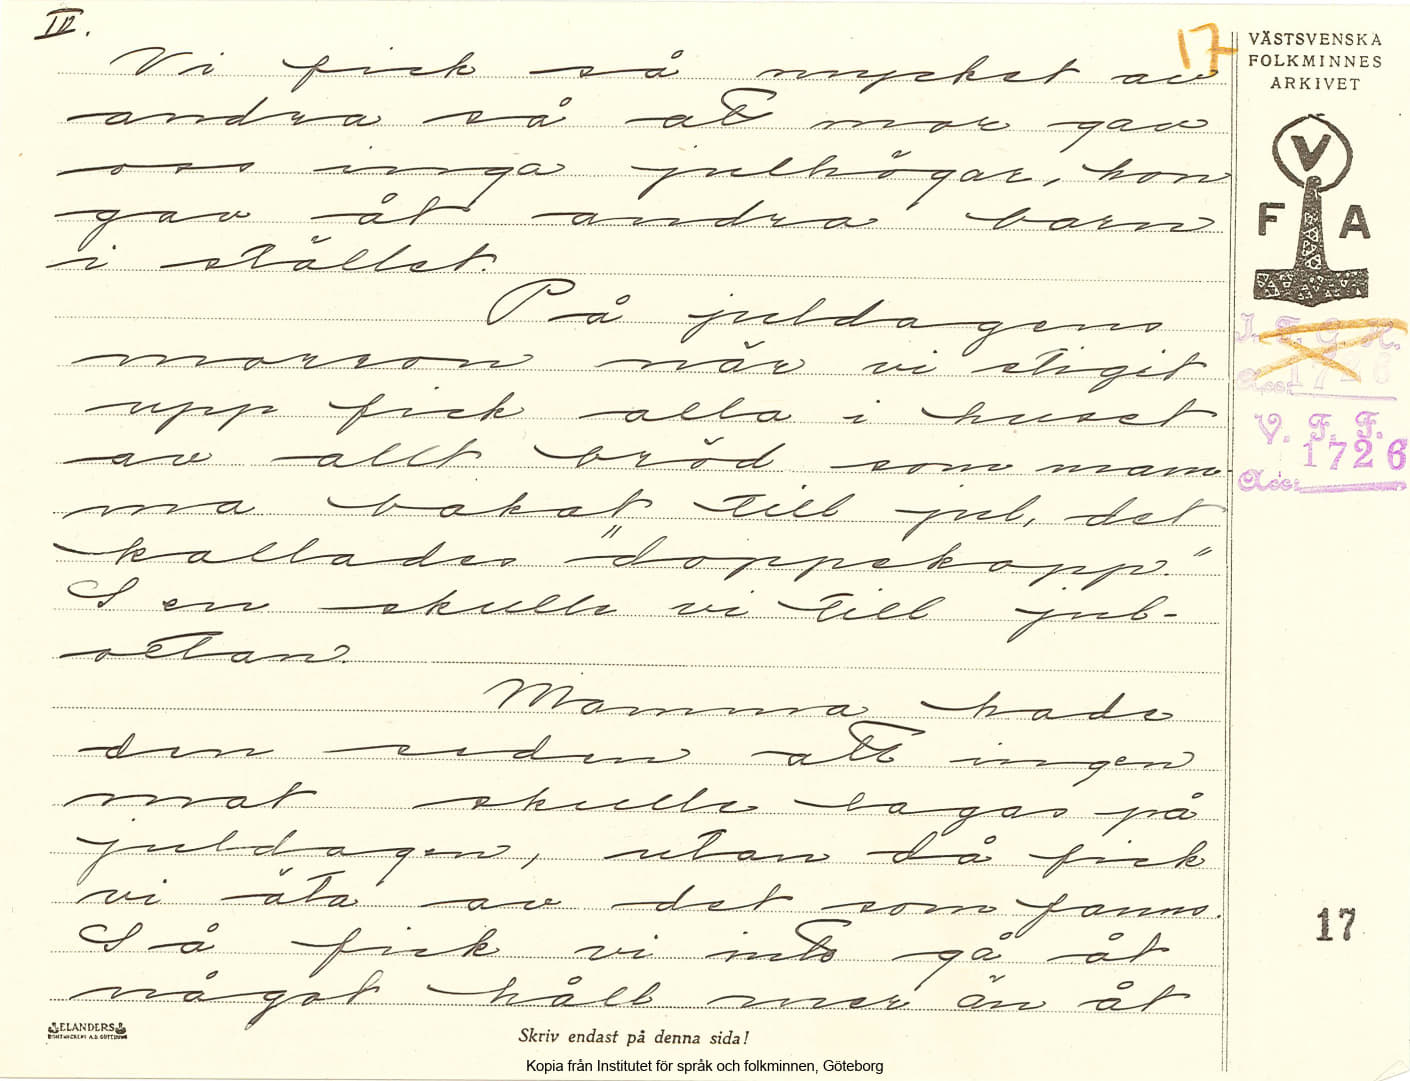 IV.
17
Vi fick så mycket av
andra så att mor gav
oss inga julhögar, hon
gav åt andra barn
i stället.
På juldagens
morron när vi stigit
upp fick alla i huset
av allt bröd som mam-
ma bakat till jul, det
kallades "doppekopp."
Sen skulle vi till jul-
ottan.
Mamma hade
den seden att ingen
mat skulle lagas på
juldagen, utan då fick
vi äta av det som fanns.
Så fick vi inte gå åt
något håll mer än åt
VÄSTSVENSKA
FOLKMINNES
ARKIVET
V
F A
I. F. G. H.
Acc: 1726
V. F. F.
1726
Acc:
17
ELANDERS
Skriv endast på denna sida!
Kopia från Institutet för språk och folkminnen, Göteborg